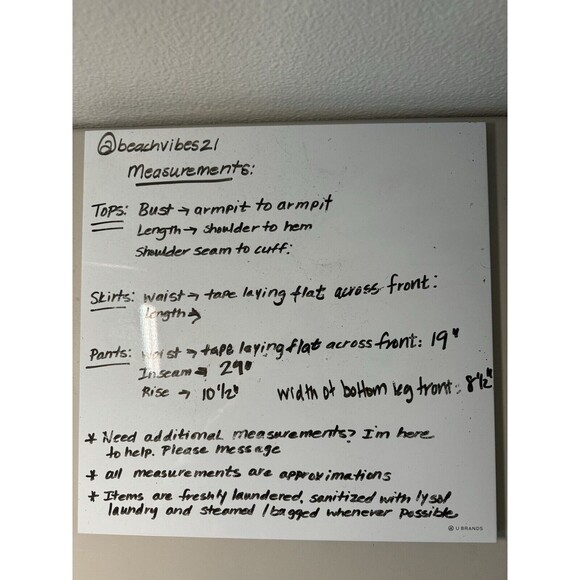 @beachvibes21
Measurements:
Tops: Bust → armpit to armpit
Length → shoulder to hem
Shoulder seam to cuff:
Skirts: Waist → tape laying flat across front:
Length →
Pants: Waist → tape laying flat across front: 19"
Inseam → 29"
Rise → 10 1/2" Width of bottom leg front: 8 1/2"
* Need additional measurements? I'm here
to help. Please message
* all measurements are approximations
* Items are freshly laundered, sanitized with lysol
laundry and steamed / bagged whenever possible
U BRANDS